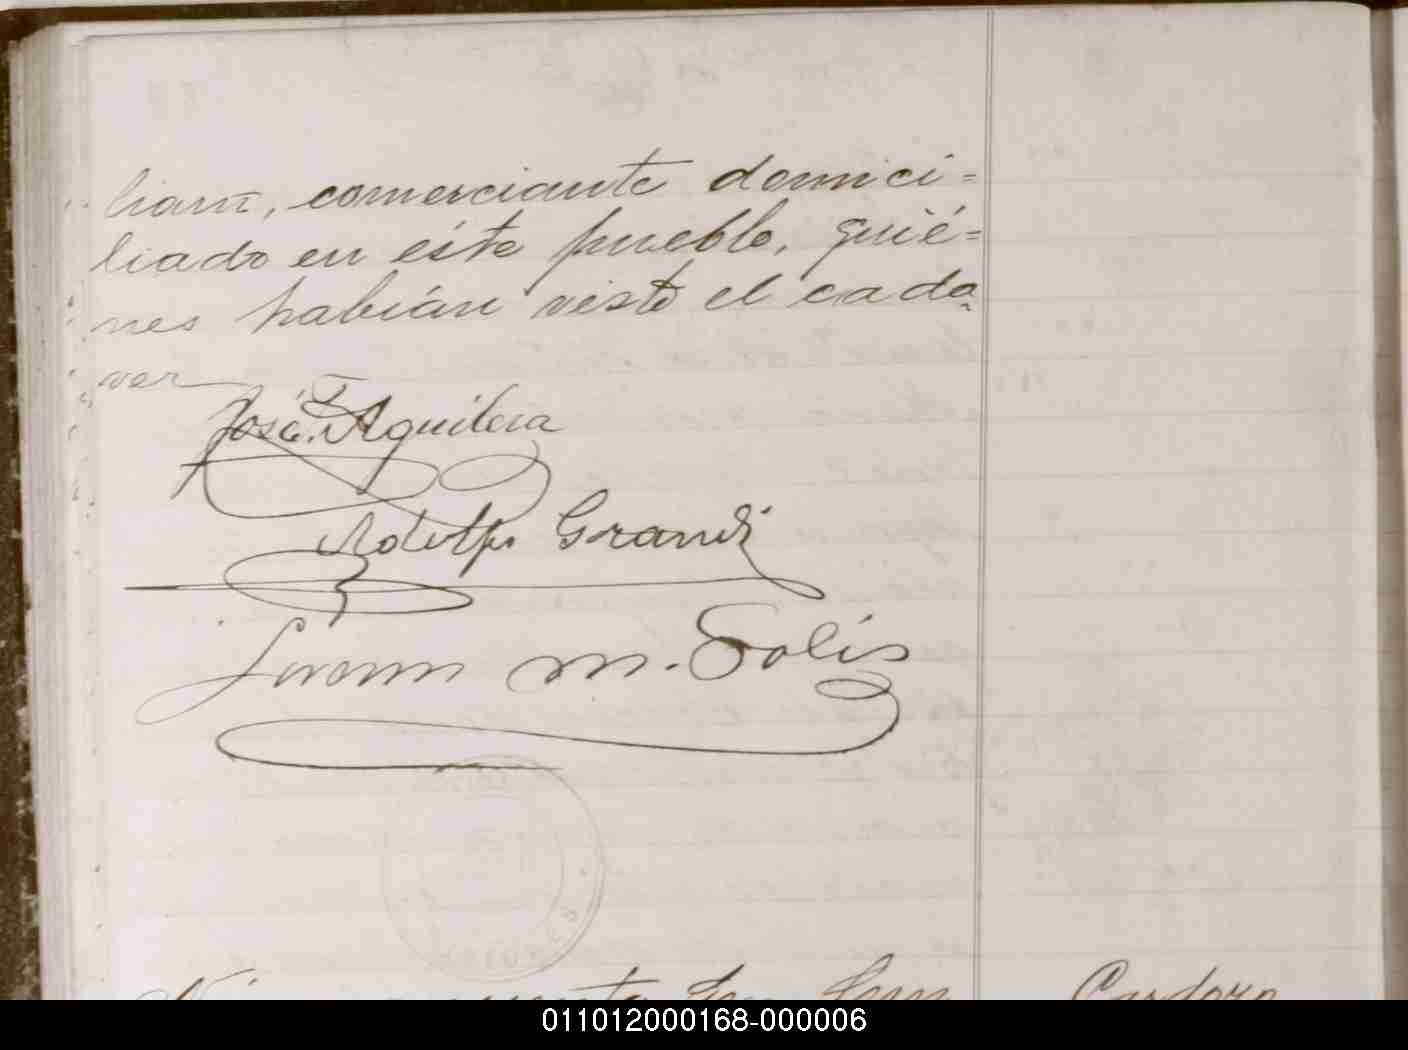 comerciante domici=
liado en éste pueblo, quié=
nes habían visto el cada
ver
José T. Aguilera
Adolfo Grandi
M. Solís
Cardozo
011012000168-000006